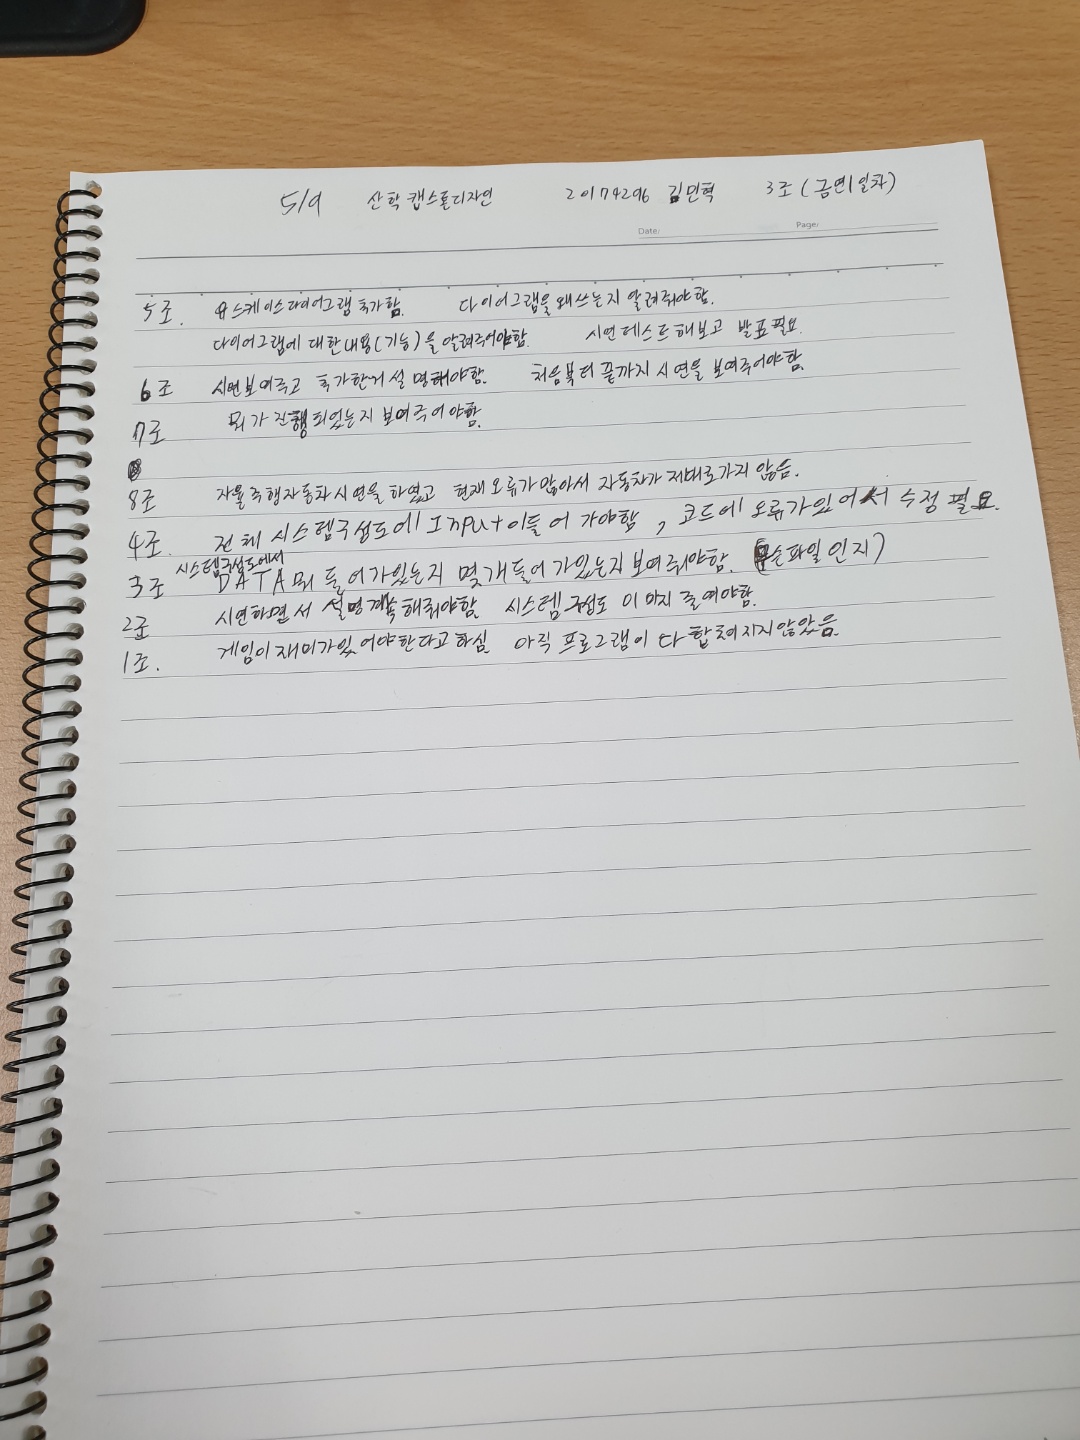 5/9 산학캡스톤디자인 20174296 김민혁 3조(금연1일차)
Date: Page:
5조. 유스케이스다이어그램 추가함. 다이어그램을 왜쓰는지 알려줘야함.
다이어그램에 대한 내용(기능)을 알려주어야함. 시연 테스트해보고 발표필요.
6조 시연보여주고 추가한거 설명해야함. 처음부터 끝까지 시연을 보여주어야함.
7조 뭐가 진행되었는지 보여주어야함.
8조 자율주행자동차시연을 하였고 현재 오류가많아서 자동차가 제대로가지 않음.
4조. 전체 시스템구성도에 Input이들어 가야함, 코드에 오류가있어서 수정 필요.
시스템구성도에서
3조 DATA뭐 들어가있는지 몇개들어가있는지보여줘야함. 파일인지)
2조 시연하면서 설명계속해줘야함. 시스템 구성도 이미지 줄여야함.
1조. 게임이재미가있어야한다고하심. 아직 프로그램이 다 합쳐지지않았음.